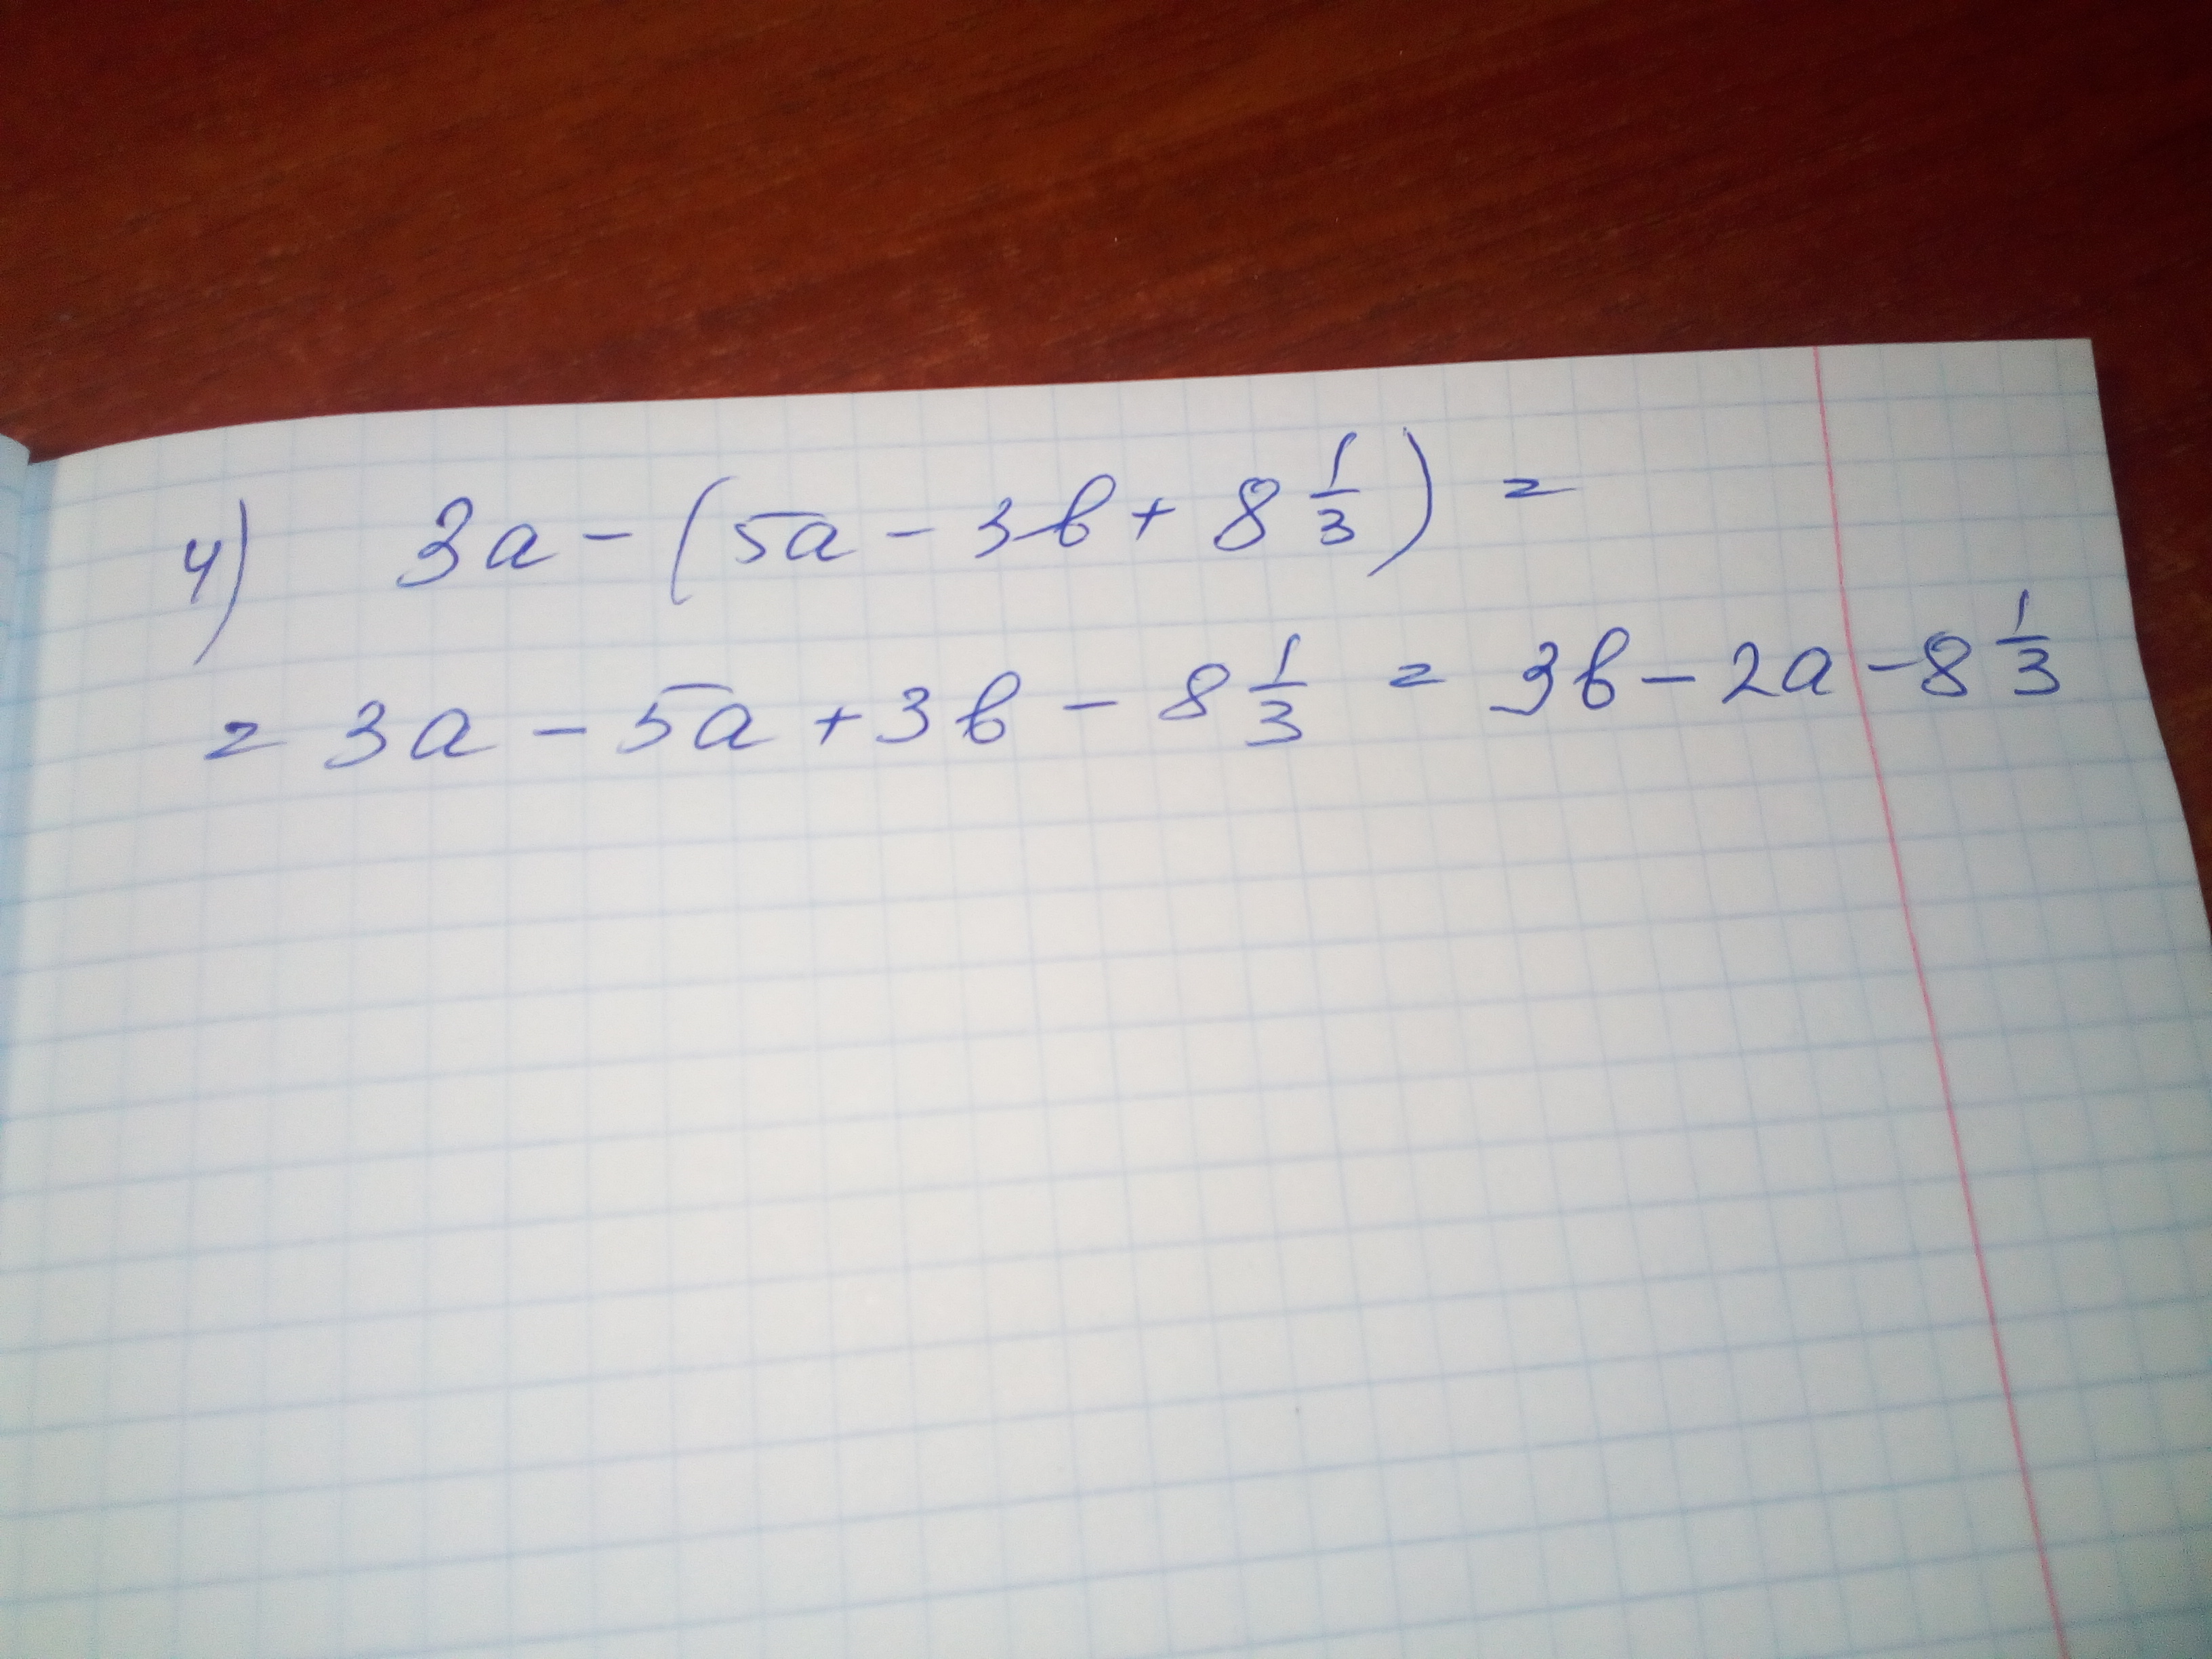 4) 3a - (5a - 3b + 8 1/3) =
= 3a - 5a + 3b - 8 1/3 = 3b - 2a - 8 1/3